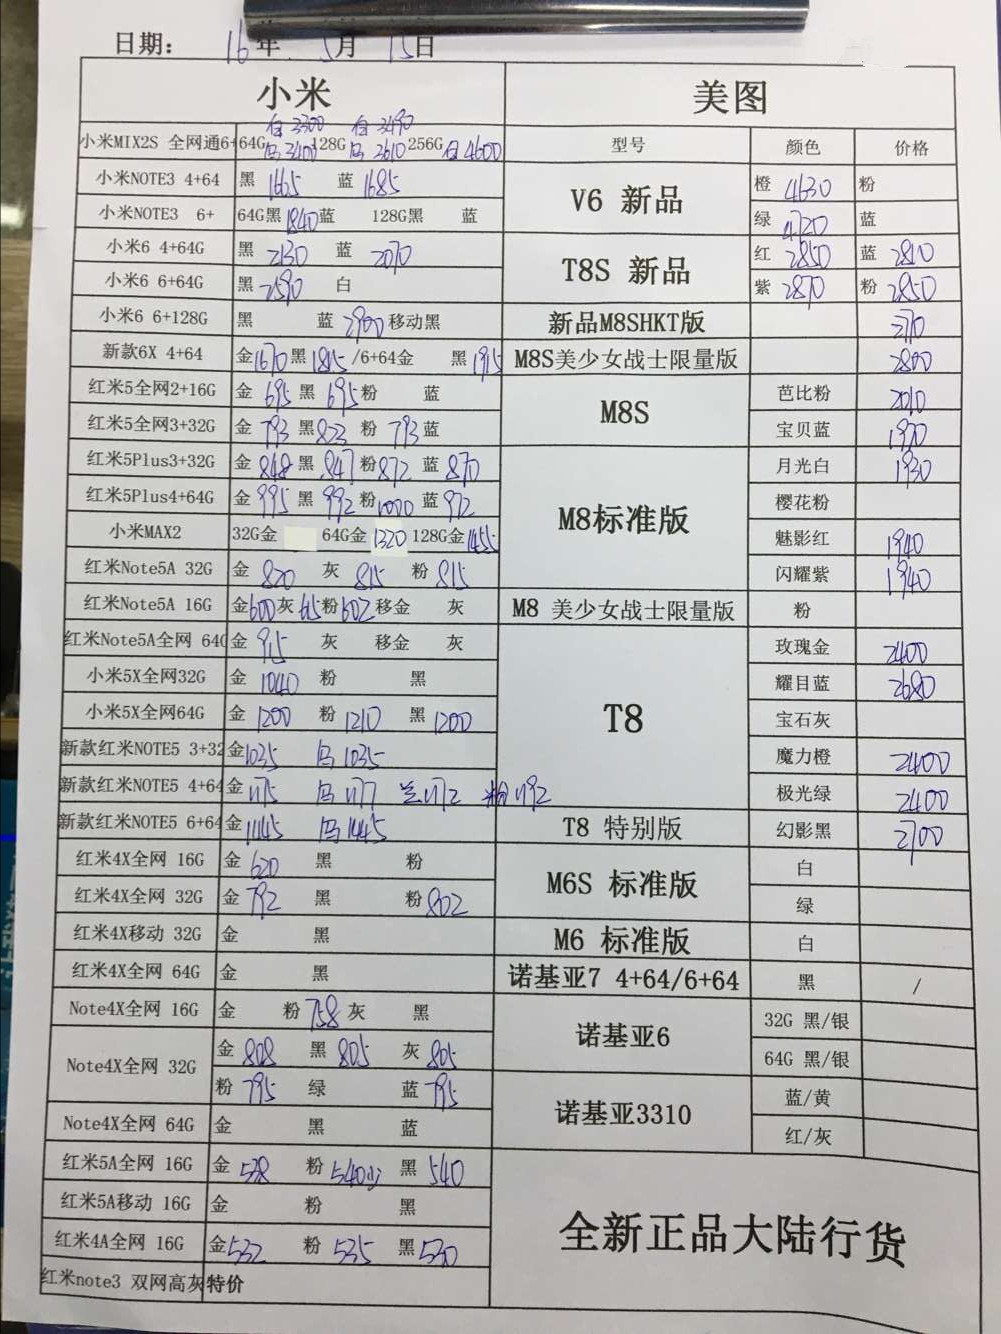 日期： 16年 5月 15日
小米 美图
白3300 白3490
小米MIX2S 全网通6+ 64G 黑3400 128G 黑3610 256G 白4600 型号 颜色 价格
小米NOTE3 4+64 黑 1665 蓝 1685 V6 新品 橙 4630 粉
小米NOTE3 6+ 64G黑 1840 蓝 128G黑 蓝 绿 4720 蓝
小米6 4+64G 黑 2130 蓝 2070 T8S 新品 红 2850 蓝 2810
小米6 6+64G 黑 2590 白 紫 2870 粉 2850
小米6 6+128G 黑 蓝 2900 移动黑 新品M8SHKT版
新款6X 4+64 金1670 黑1815 /6+64金 黑 1915 M8S美少女战士限量版 2800
红米5全网2+16G 金 695 黑 695 粉 蓝 M8S 芭比粉 2010
红米5全网3+32G 金 793 黑 823 粉 793 蓝 宝贝蓝 1970
红米5Plus3+32G 金 848 黑 847 粉 872 蓝 870 M8标准版 月光白 1930
红米5Plus4+64G 金 995 黑 992 粉 1000 蓝 972 樱花粉
小米MAX2 32G金 64G金 1320 128G金 1455 魅影红 1940
红米Note5A 32G 金 820 灰 815 粉 815 闪耀紫 1940
红米Note5A 16G 金600 灰 615 粉 602 移金 灰 M8 美少女战士限量版 粉
红米Note5A全网 64G 金 915 灰 移金 灰 T8 玫瑰金 2400
小米5X全网32G 金 1040 粉 黑 耀目蓝 2680
小米5X全网64G 金 1200 粉 1210 黑 1200 宝石灰
新款红米NOTE5 3+32 金1035 黑 1035 魔力橙 2400
新款红米NOTE5 4+64 金 1175 黑 1177 兰 1172 粉 1192 极光绿 2400
新款红米NOTE5 6+64 金 1445 黑 1445 T8 特别版 幻影黑 2700
红米4X全网 16G 金 620 黑 粉 M6S 标准版 白
红米4X全网 32G 金 792 黑 粉 802 绿
红米4X移动 32G 金 黑 M6 标准版 白
红米4X全网 64G 金 黑 诺基亚7 4+64/6+64 黑 /
Note4X全网 16G 金 粉 758 灰 黑 诺基亚6 32G 黑/银
Note4X全网 32G 金 808 黑 805 灰 805 64G 黑/银
粉 795 绿 蓝 795 诺基亚3310 蓝/黄
Note4X全网 64G 金 黑 蓝 红/灰
红米5A全网 16G 金 538 粉 540少 黑 540 全新正品大陆行货
红米5A移动 16G 金 粉 黑
红米4A全网 16G 金532 粉 535 黑530
红米note3 双网高灰特价